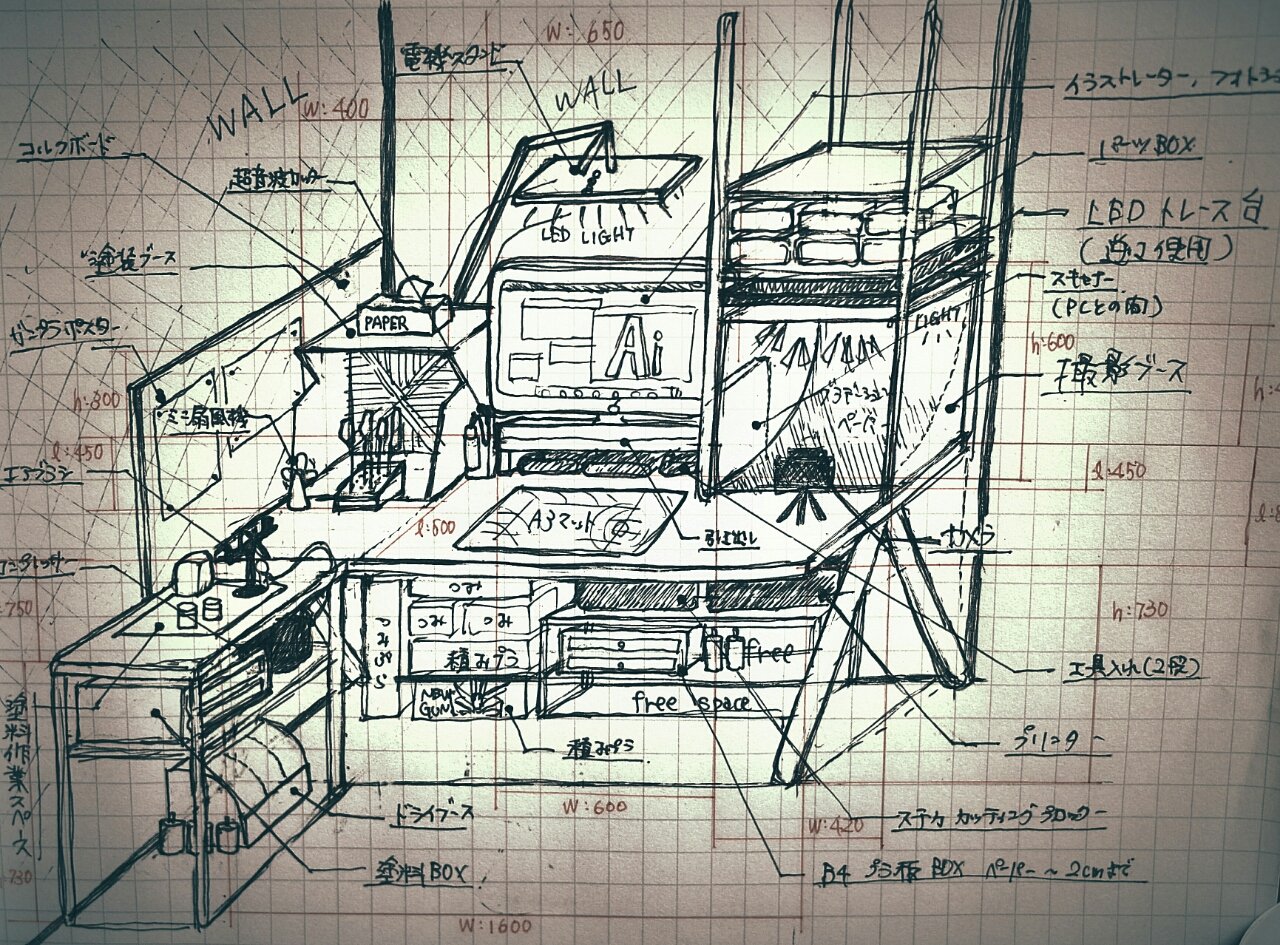 W: 650
電機スタンド
WALL
WALL
W: 400
コルクボード
超音波カッター
イラストレーター, フォトショ
パーツBOX
LED トレース台
LED LIGHT
塗装ブース
スキャナー
(PCとの間)
PAPER
LIGHT
ガンプラポスター
Ai
h:600
撮影ブース
h:800
ミニ扇風機
グラデーション
ペーパー
l:450
l:450
エアブラシ
l:500
A3マット
引き出し
カメラ
コンプレッサー
つみ
h:730
750
つみ
つみ
つみぷら
積みプラ
free
工具入れ(2段)
NEW
GUN
free space
プリンター
積みプラ
塗料作業スペース
W:600
ドライブース
W:420
ステカ カッティングプロッター
塗料BOX
B4 プラ板 BOX ペーパー~2cmまで
730
W:1600